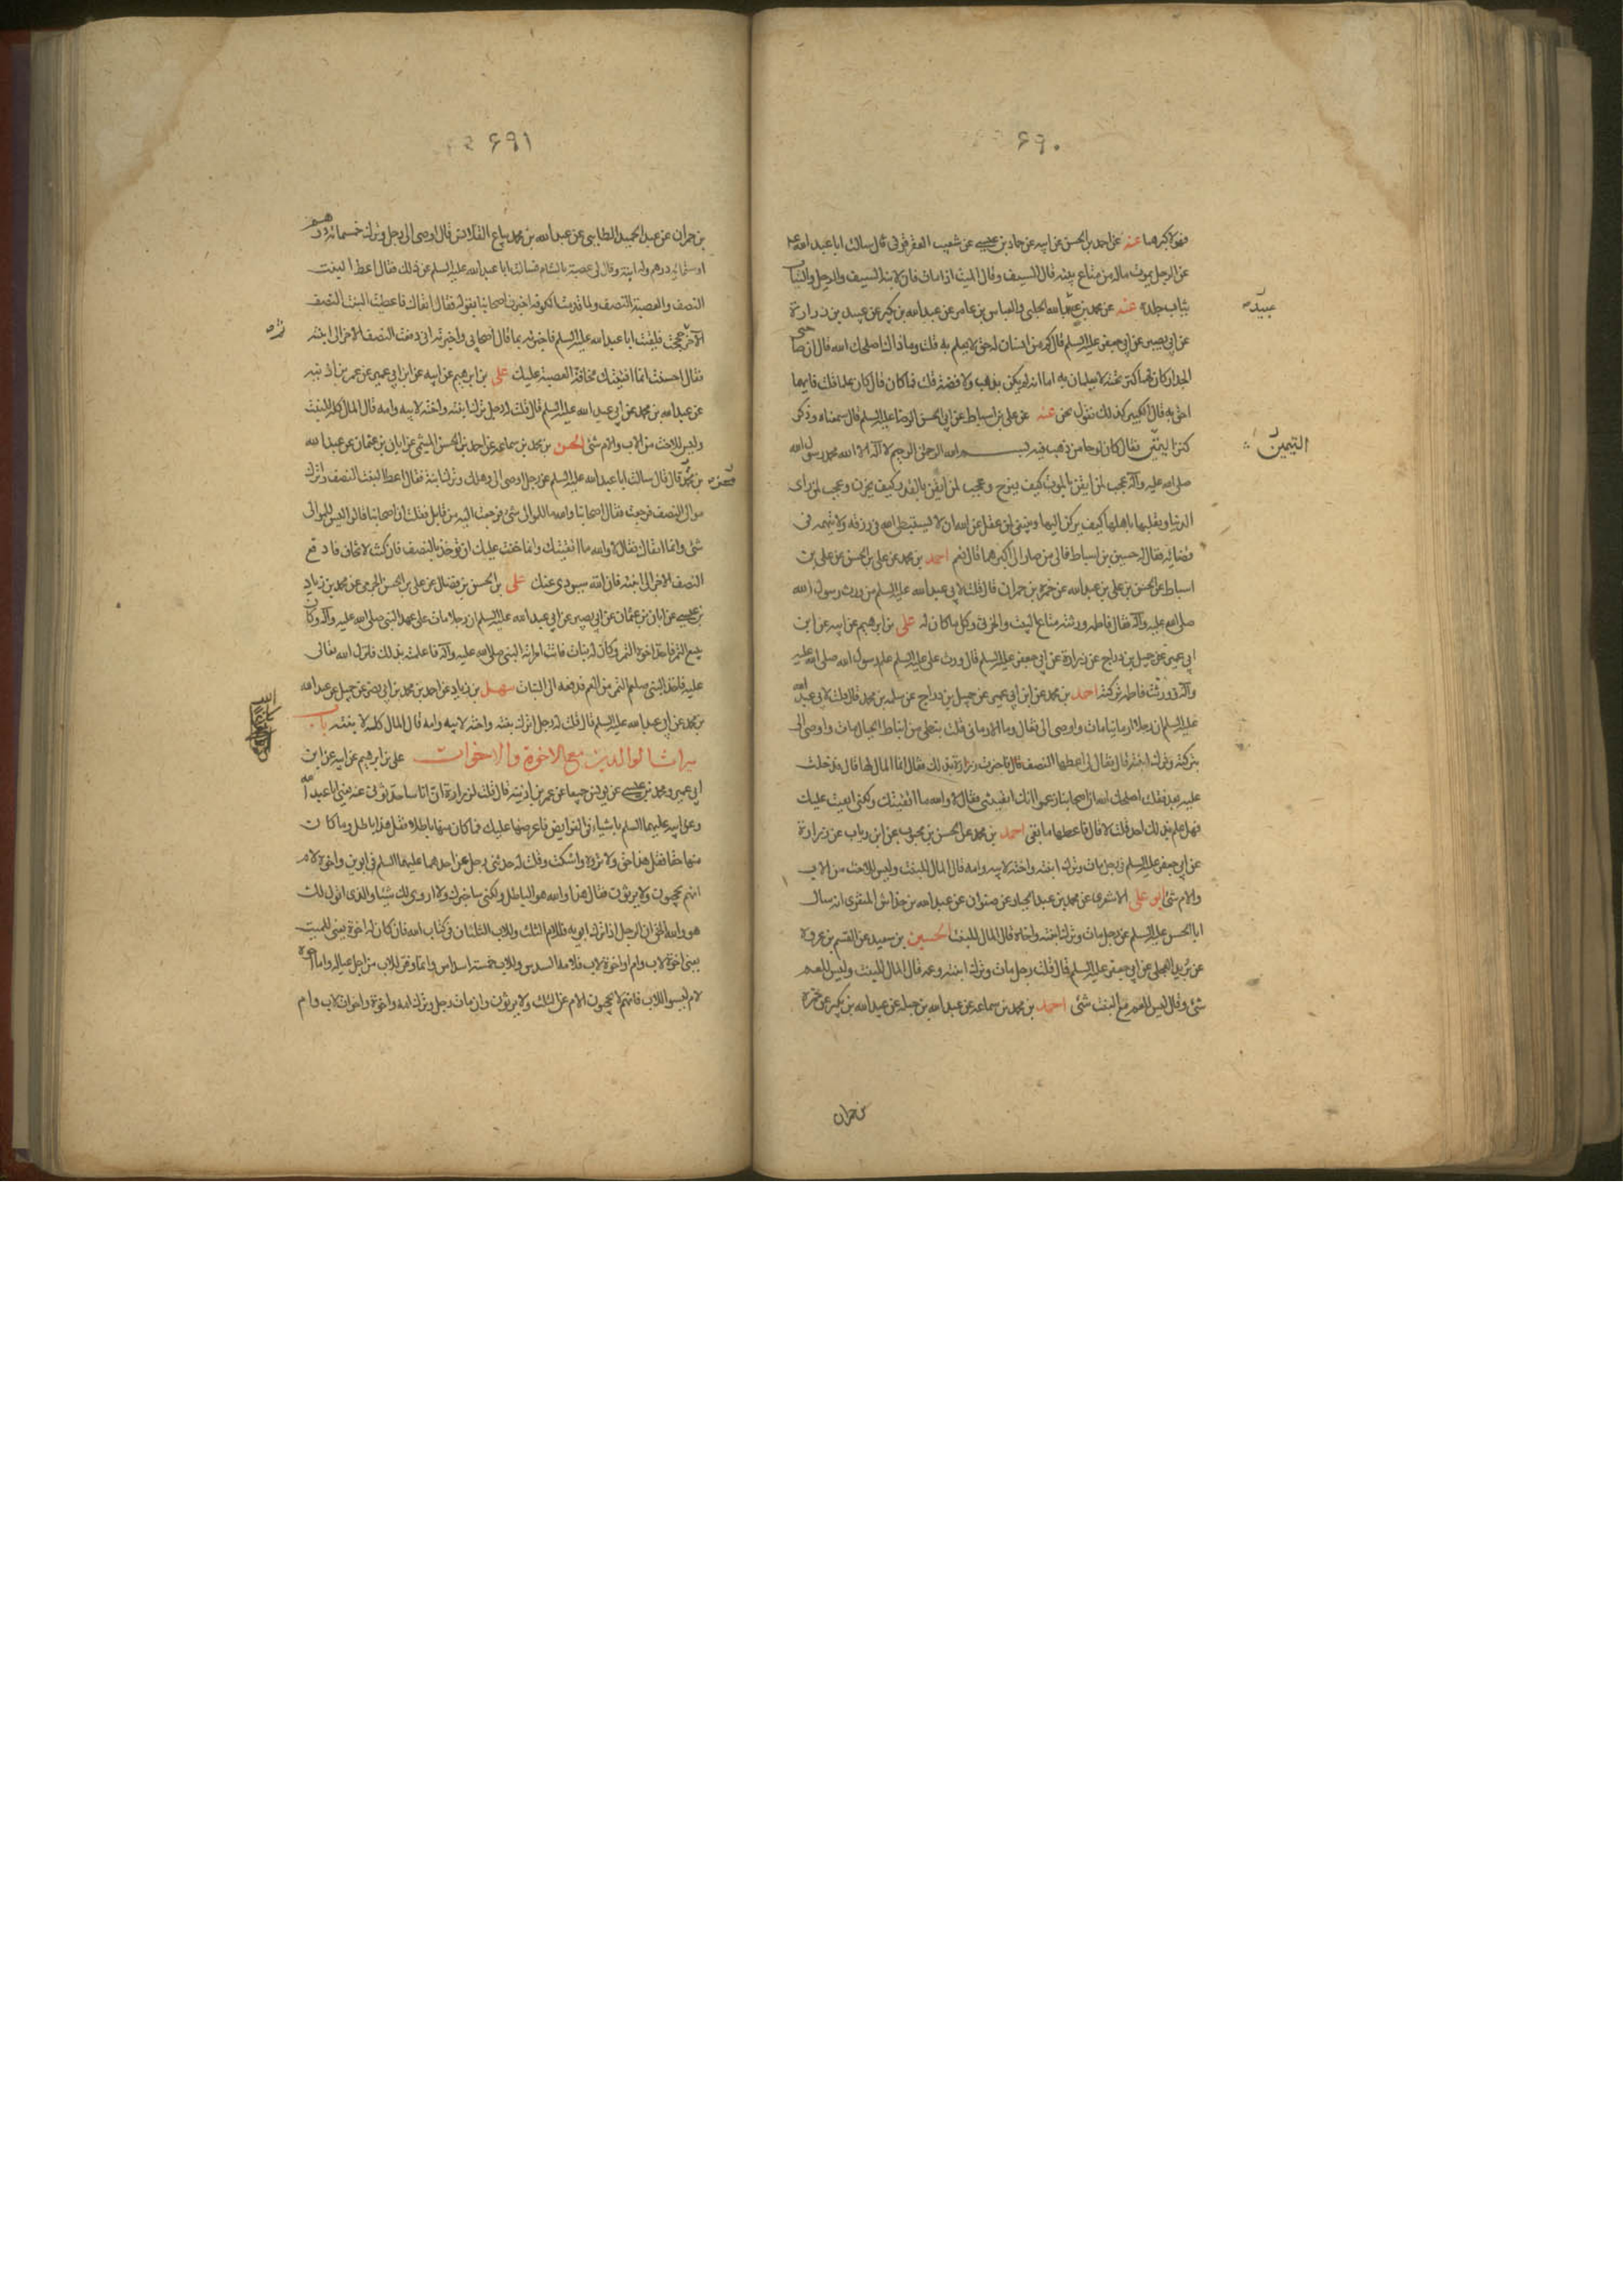 ۶۹۰
فهو لاكبرهما عنه عن احمد بن الحسن عن ابيه عن حماد بن عيسى عن شعيب العقرقوفى قال سالت ابا عبد الله ع
عن الرجل يموت ماله من متاع بيته قال السيف وقال الميت اذا مات فان لابنه السيف والرحل والثياب
ثياب جلده عنه عن محمد بن عبيد الله الحلبى والعباس بن عامر عن عبد الله بن بكير عن عبيد بن زرارة
عبيد
عن ابى بصير عن ابى جعفر عليه السلم قال كم من انسان له حق لا يعلم به قلت وما ذاك اصلحك الله قال ان صاحبى
الجدار كان لهما كنز تحته لا يعلمان به اما انه لم يكن بذهب ولا فضة قلت فما كان قال كان علما قلت فايهما
احق به قال الكبير كذلك نقول نحن عنه عن على بن اسباط عن ابى الحسن الرضا عليه السلم قال سمعناه وذكر
كنز اليتيمين فقال كان لوحا من ذهب فيه بسم الله الرحمن الرحيم لا اله الا الله محمد رسول الله
اليتيمين
صلى الله عليه وآله عجب لمن ايقن بالموت كيف يفرح وعجب لمن ايقن بالقدر كيف يحزن وعجب لمن راى
الدنيا وتقلبها باهلها كيف يركن اليها وينبغى لمن عقل عن الله ان لا يستبطئ الله فى رزقه ولا يتهمه فى
قضائه فقال له حسين بن اسباط فالى من صار الى اكبرهما قال نعم احمد بن محمد عن على بن الحسن عن على بن
اسباط عن الحسن بن على بن عبد الله عن حمزة بن حمران قال قلت لابى عبد الله عليه السلم من ورث رسول الله
صلى الله عليه وآله فقال فاطمه ورثته متاع البيت والخرثى وكل ما كان له على بن ابرهيم عن ابيه عن ابن
ابى عمير عن جميل بن دراج عن زرارة عن ابى جعفر عليه السلم قال ورث على عليه السلم علم رسول الله صلى الله عليه
وآله وورثت فاطمه تركته احمد بن محمد عن ابن ابى عمير عن جميل بن دراج عن سلمه بن محرز قال قلت لابى عبد الله
عليه السلم ان رجلا ارمانيا مات واوصى الى فقال وما الارمانى قلت نبطى من انباط الجبال مات واوصى الى
بتركته وترك ابنته قال فقال لى اعطها النصف قال فاخبرت زرارة بذلك فقال اتقاك انما المال لها قال فدخلت
عليه بعد فقلت اصلحك الله ان اصحابنا زعموا انك اتقيتنى فقال لا والله ما اتقيتك ولكنى اتقيت عليك
فهل علم بذلك احد قلت لا قال فاعطها ما بقى احمد بن محمد عن الحسن بن محبوب عن ابن رياب عن زرارة
عن ابى جعفر عليه السلم فى رجل مات وترك ابنته واخته لابيه وامه قال المال للبنت وليس للاخت من الاب
والام شئ ابو على الاشعرى عن محمد بن عبد الجبار عن صفوان عن عبد الله بن خداش المنقرى انه سال
ابا الحسن عليه السلم عن رجل مات وترك ابنته واخاه قال المال للبنت الحسين بن سعيد عن القسم بن عروة
عن بريد العجلى عن ابى جعفر عليه السلم قال قلت رجل مات وترك ابنته وعمه قال المال للبنت وليس للعم
شئ وقال ليس للعم مع البنت شئ احمد بن محمد بن سماعه عن عبد الله بن جبله عن عبد الله بن بكير عن حمزة
بن حمران
۶۹۱
بن حمران عن عبد الحميد الطايى عن عبد الله بن محمد بياع القلانس قال اوصى الى رجل وترك خمسمائة درهم
او ستمائة درهم وله ابنة وقال لى عصبة بالشام فسالت ابا عبد الله عليه السلم عن ذلك فقال اعط البنت
النصف والعصبة النصف ولما قدمت الكوفه اخبرت اصحابنا بقوله فقالوا اتقاك فاعطيت البنت النصف
الآخر ثم حججت فلقيت ابا عبد الله عليه السلم فاخبرته بما قال اصحابى واخبرته انى دفعت النصف الآخر الى ابنته
فقال احسنت انما افتيتك مخافة العصبة عليك على بن ابرهيم عن ابيه عن ابن ابى عمير عن عمر بن اذينه
عن عبد الله بن محمد عن ابى عبد الله عليه السلم قال قلت له رجل ترك ابنته واخته لابيه وامه قال المال كله للبنت
وليس للاخت من الاب والام شئ الحسن بن محمد بن سماعه عن احمد بن الحسن الميثمى عن ابان بن عثمان عن عبد الله
بن محمد قال قال سالت ابا عبد الله عليه السلم عن رجل اوصى الى وهلك وترك ابنة فقال اعط البنت النصف واترك
موال النصف فرجعت فقال اصحابنا والله ما للموالى شئ فرجعت اليه من قابل فقلت ان اصحابنا قالوا ليس للموالى
شئ وانما اتقاك فقال لا والله ما اتقيتك وانما خفت عليك ان تؤخذ بالنصف فان كنت لا تخاف فادفع
النصف الآخر الى ابنته فان الله سيودى عنك على بن الحسن بن فضال عن على بن الحسن الجرمى عن محمد بن زياد
بن عيسى عن ابان بن عثمان عن ابى بصير عن ابى عبد الله عليه السلم ان رجلا مات على عهد النبى صلى الله عليه وآله وكان
يبيع التمر فاخذ اخوه التمر وكان له بنات فاتت امراته النبى صلى الله عليه وآله فاعلمته بذلك فانزل الله تعالى
عليه فاخذ النبى صلعم التمر من العم فدفعه الى البنات سهل بن زياد عن احمد بن محمد بن ابى نصر عن جميل عن عبد الله
بن محمد عن ابى عبد الله عليه السلم قال قلت له رجل ترك بنته واخته لابيه وامه قال المال كله لابنته باب
ميراث الوالدين مع الاخوة والاخوات على بن ابرهيم عن ابيه عن ابن
ابى عمير ومحمد بن عيسى عن يونس جميعا عن عمر بن اذينه قال قلت لزرارة ان اناسا حدثونى عنه يعنى ابا عبد الله
وعن ابيه عليهما السلم باشياء فى الفرايض فاعرضها عليك فما كان منها باطلا فقل هذا باطل وما كان
منها حقا فقل هذا حق ولا تروه واسكت وقلت له حدثنى رجل عن احدهما عليهما السلم فى ابوين واخوة لام
انهم يحجبون ولا يرثون فقال هذا والله هو الباطل ولكنى ساخبرك ولا اروى لك شيئا والذى اقول لك
هو والله الحق ان الرجل اذا ترك ابويه فللام الثلث وللاب الثلثان فى كتاب الله فان كان له اخوة يعنى للميت
يعنى اخوة لاب وام او اخوة لاب فلامه السدس وللاب خمسة اسداس وانما وفر للاب من اجل عياله واما اخوة
لام ليسوا للاب فانهم لا يحجبون الام عن الثلث ولا يرثون وان مات رجل وترك امه واخوة واخوات لاب وام